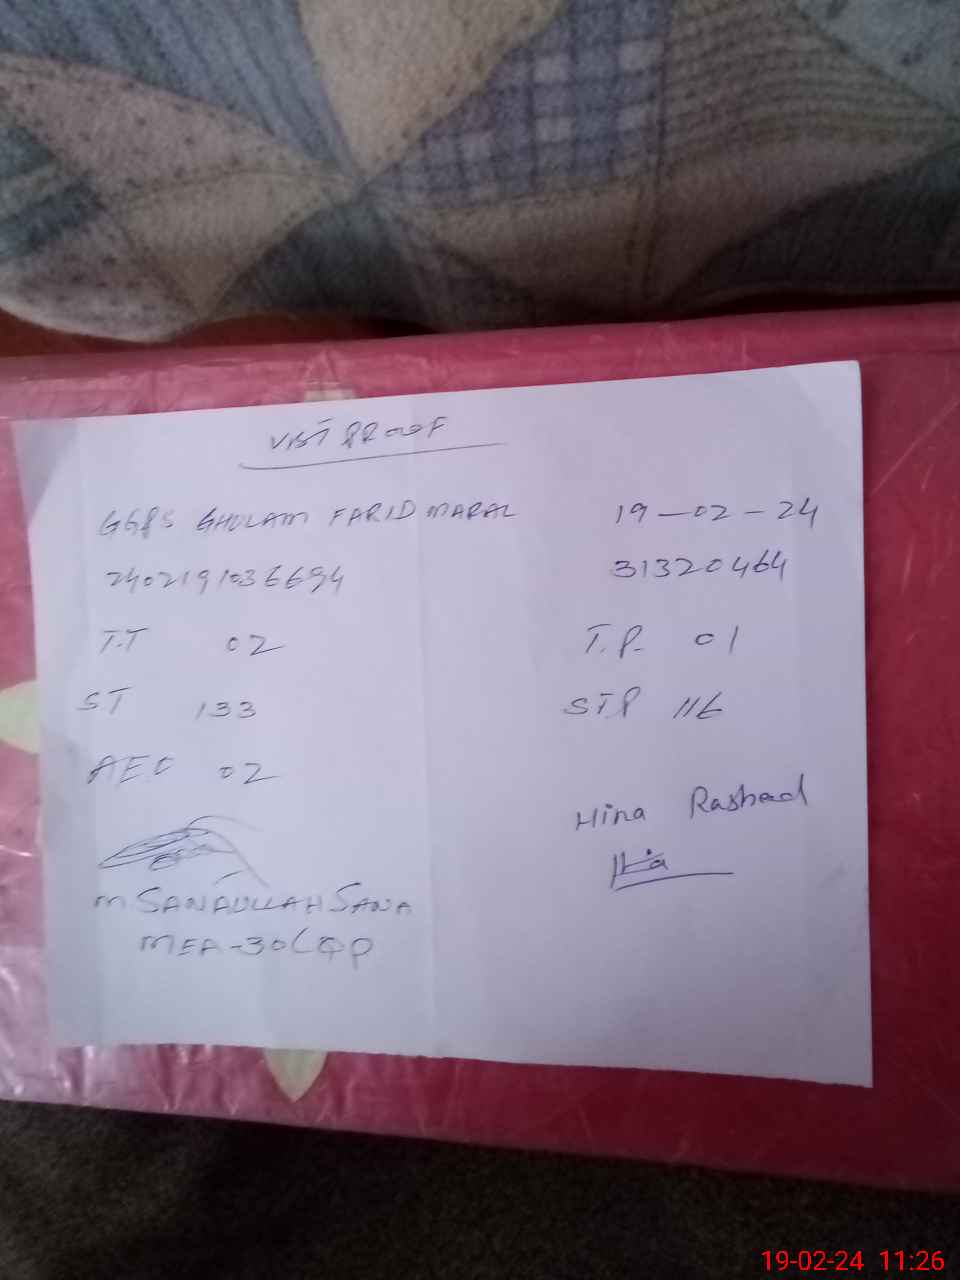 VISIT PROOF
GGPS GHULAM FARID MARAL 19-02-24
2402191036694 31320464
T.T 02 T.P. 01
ST 133 STP 116
AEO 02
Hina Rashad
Hina
M SANAULLAH SANA
MEA-30LQP
19-02-24 11:26